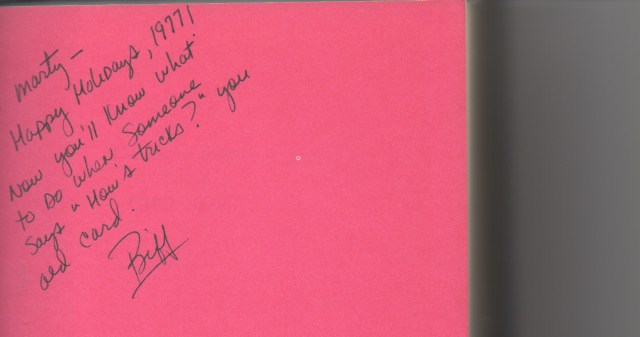 Marty—
Happy Holidays, 1977!
Now you'll know what
to do when someone
says "How's tricks?" you
old card.
Biff